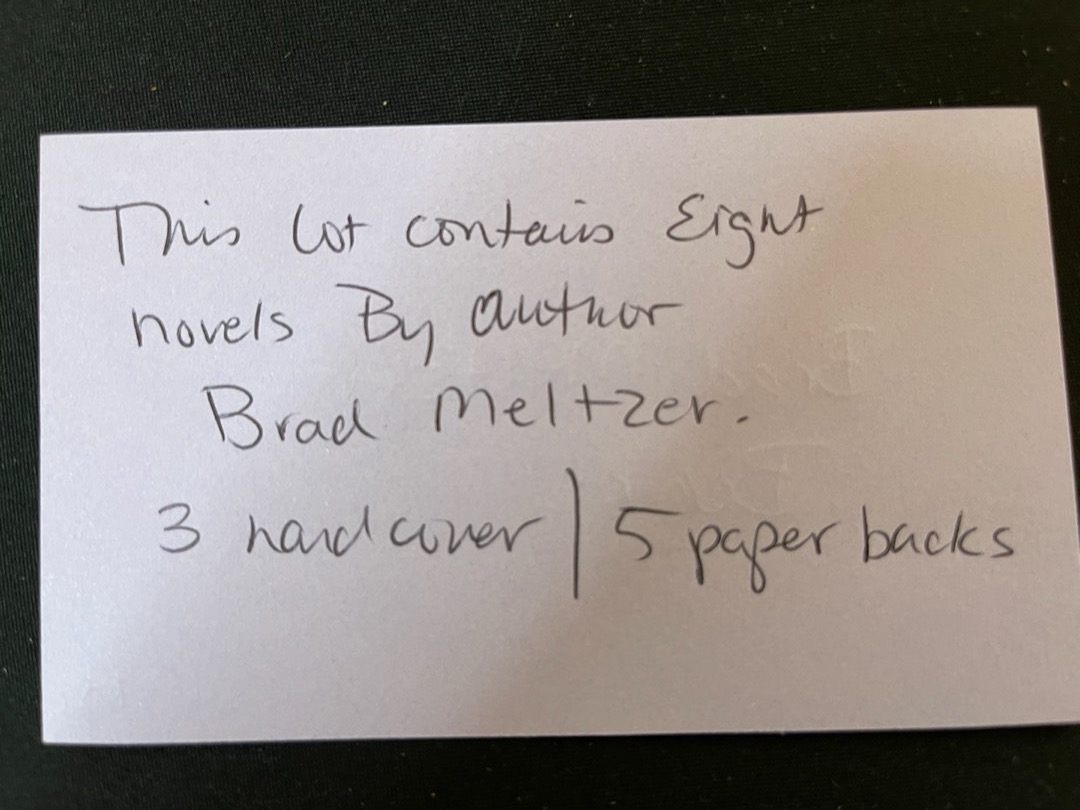 This lot contains Eight
novels By author
Brad Meltzer.
3 hardcover | 5 paper backs